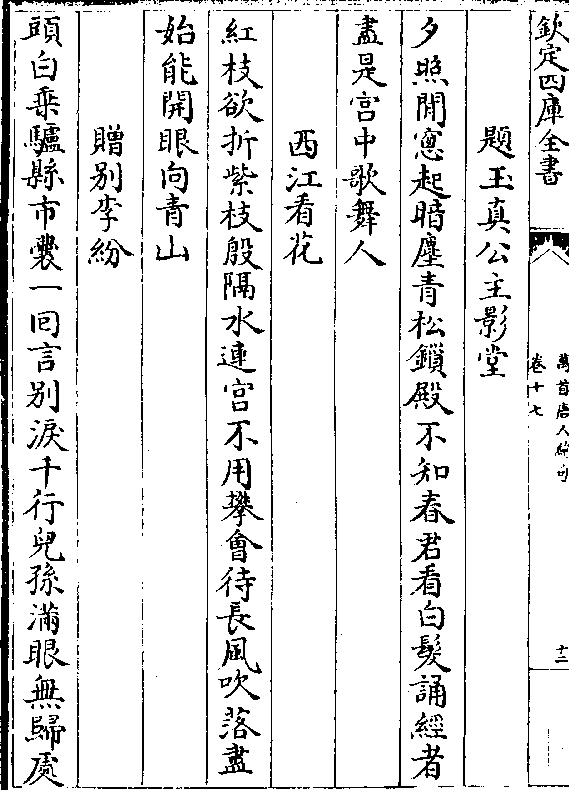 欽定四庫全書
萬首唐人絶句
卷十七
十二
題玉真公主影堂
夕照閒窻起暗塵青松鎖殿不知春君看白髮誦經者
盡是宫中歌舞人
西江看花
紅枝欲折紫枝殷隔水連宫不用攀會待長風吹落盡
始能開眼向青山
贈别李紛
頭白乗驢縣市囊一囘言别淚千行兒孫滿眼無歸處